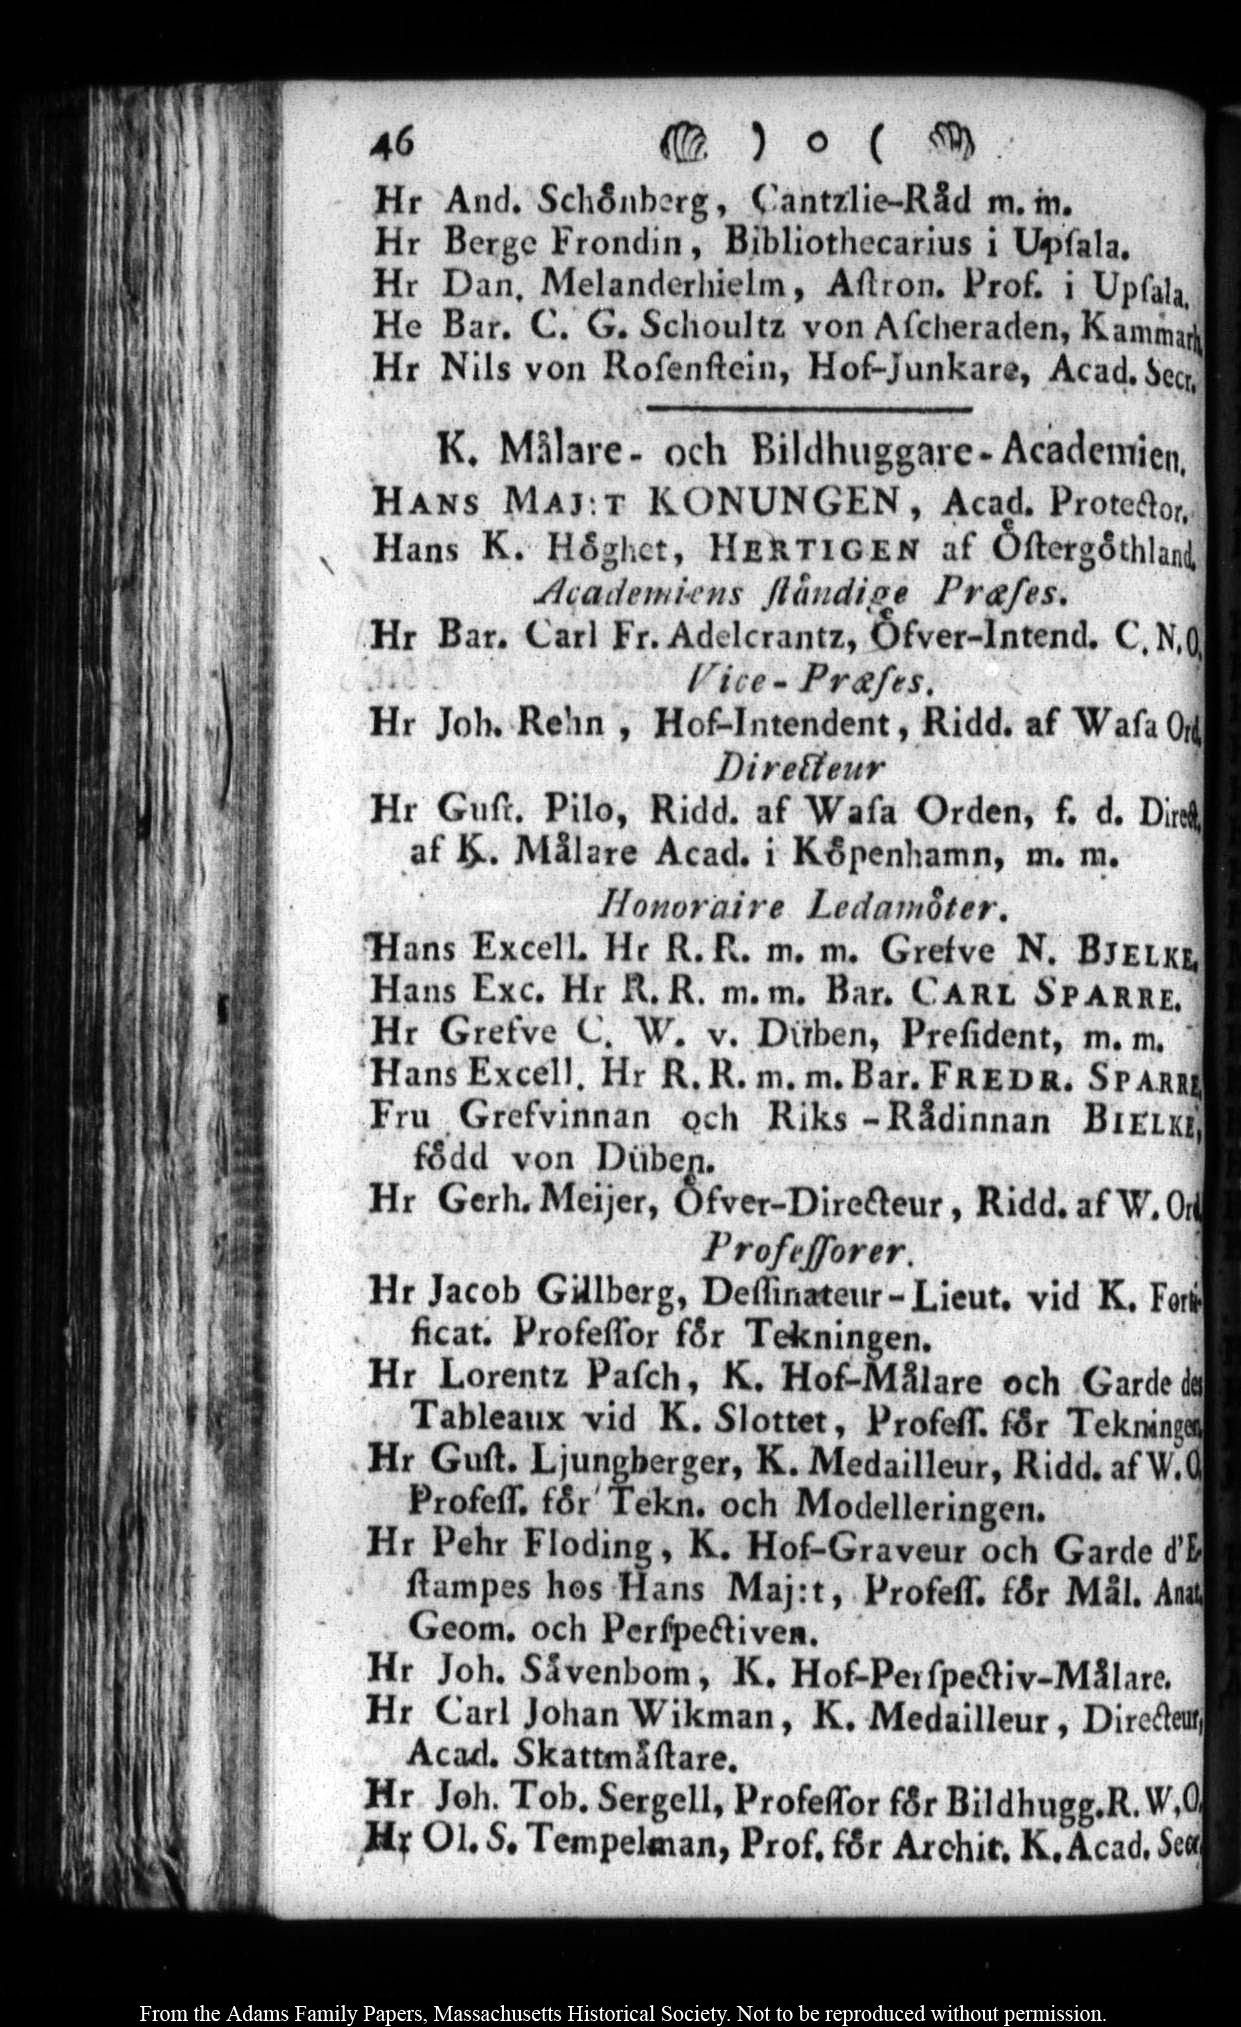 46 ) o (
Hr And. Schönberg, Cantzlie-Råd m. m.
Hr Berge Frondin, Bibliothecarius i Upſala.
Hr Dan. Melanderhielm, Aſtron. Prof. i Upſala.
He Bar. C. G. Schoultz von Aſcheraden, Kammarh.
Hr Nils von Roſenſtein, Hof-Junkare, Acad. Secr.
K. Målare- och Bildhuggare-Academien.
HANS MAJ:T KONUNGEN, Acad. Protector.
Hans K. Höghet, HERTIGEN af Öſtergöthland.
Academiens ſtändige Præſes.
Hr Bar. Carl Fr. Adelcrantz, Öfver-Intend. C. N. O.
Vice-Præſes.
Hr Joh. Rehn, Hof-Intendent, Ridd. af Waſa Ord.
Directeur
Hr Guſt. Pilo, Ridd. af Waſa Orden, f. d. Direct.
af K. Målare Acad. i Köpenhamn, m. m.
Honoraire Ledamöter.
Hans Excell. Hr R. R. m. m. Grefve N. BJELKE.
Hans Exc. Hr R. R. m. m. Bar. CARL SPARRE.
Hr Grefve C. W. v. Düben, Preſident, m. m.
Hans Excell. Hr R. R. m. m. Bar. FREDR. SPARRE
Fru Grefvinnan och Riks-Rådinnan BIELKE,
född von Düben.
Hr Gerh. Meijer, Öfver-Directeur, Ridd. af W. Ord
Profeſſorer.
Hr Jacob Gillberg, Deſſinateur-Lieut. vid K. Forti-
ficat. Profeſſor för Tekningen.
Hr Lorentz Paſch, K. Hof-Målare och Garde des
Tableaux vid K. Slottet, Profeſſ. för Tekningen.
Hr Guſt. Ljungberger, K. Medailleur, Ridd. af W. O.
Profeſſ. för Tekn. och Modelleringen.
Hr Pehr Floding, K. Hof-Graveur och Garde d'E-
ſtampes hos Hans Maj:t, Profeſſ. för Mål. Anat.
Geom. och Perſpectiven.
Hr Joh. Sävenbom, K. Hof-Perſpectiv-Målare.
Hr Carl Johan Wikman, K. Medailleur, Directeur,
Acad. Skattmäſtare.
Hr Joh. Tob. Sergell, Profeſſor för Bildhugg. R. W. O.
Hr Ol. S. Tempelman, Prof. för Archit. K. Acad. Secr
From the Adams Family Papers, Massachusetts Historical Society. Not to be reproduced without permission.